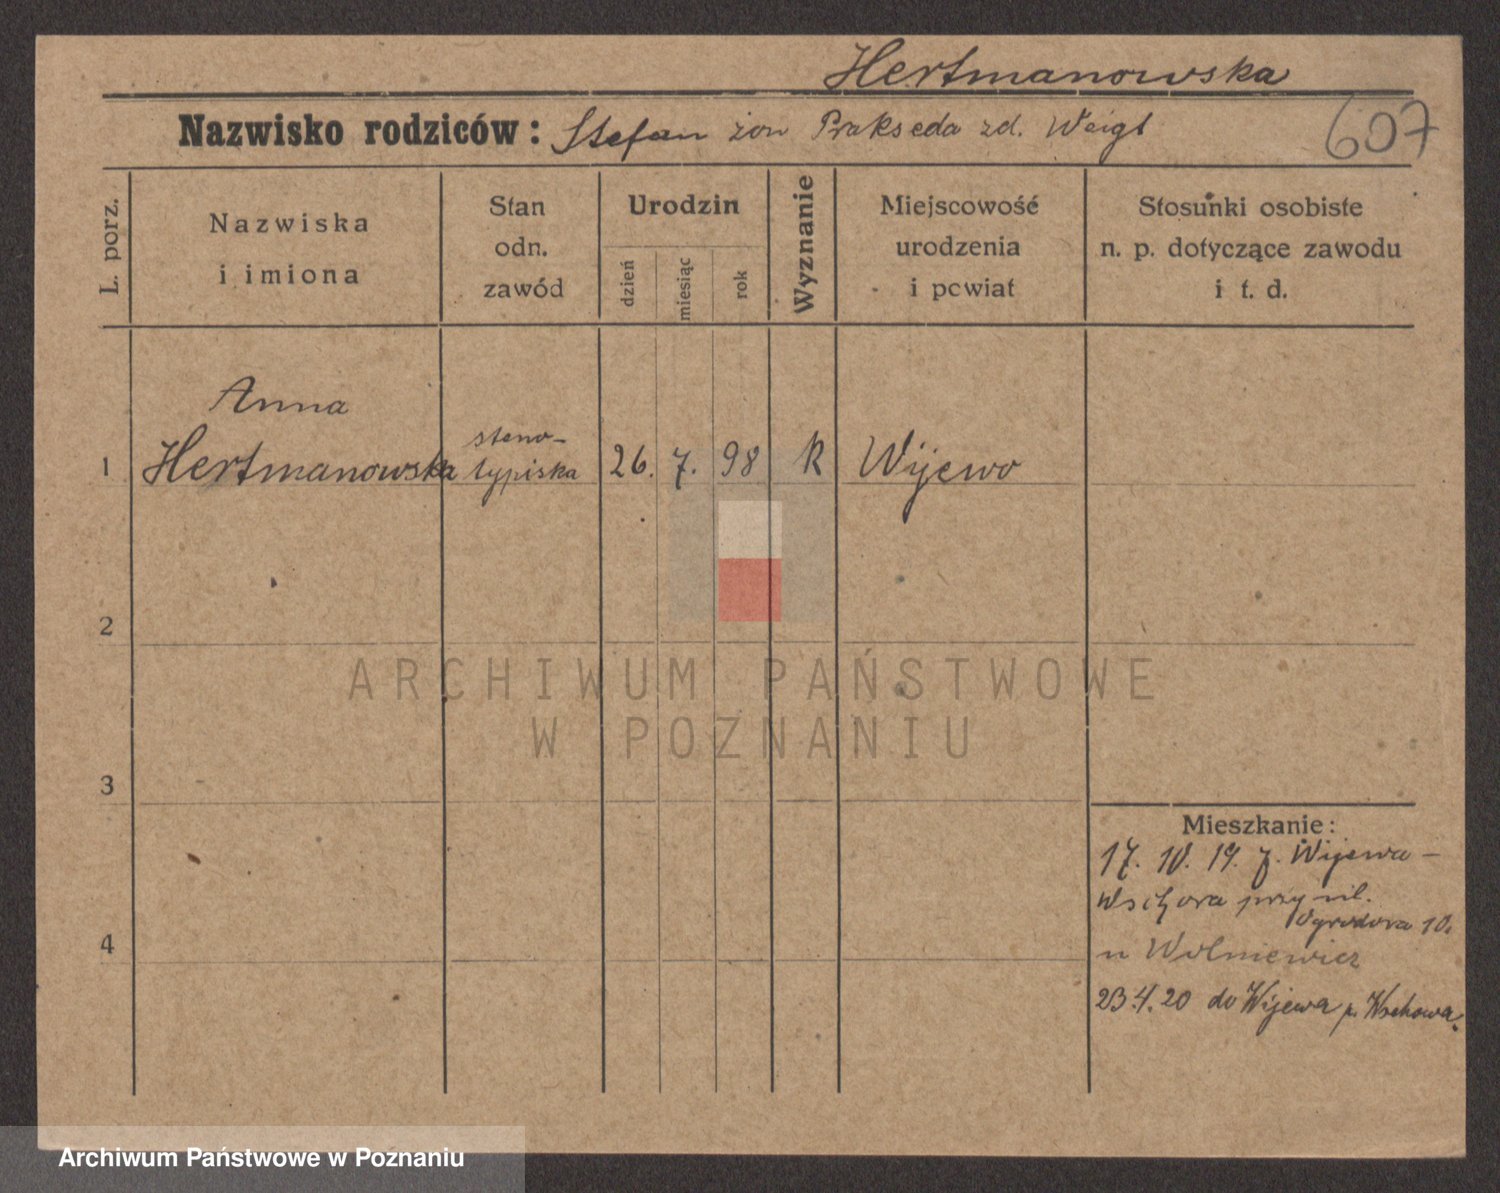 Hertmanowska
Nazwisko rodziców: Stefan żon Prakseda zd. Weigt
607
L. porz.
Nazwiska
i imiona
Stan
odn.
zawód
Urodzin
dzień
miesiąc
rok
Wyznanie
Miejscowość
urodzenia
i powiat
Stosunki osobiste
n. p. dotyczące zawodu
i t. d.
Anna
1 Hertmanowska
steno-
typiska
26. 7. 98 R Wijewo
2
ARCHIWUM PAŃSTWOWE
W POZNANIU
3
4
Mieszkanie:
17. 10. 19. z. Wijewa -
przy ul.
Ogrodowa 10.
u Wolniewicz
23.4.20 do Wijewa p. Wschowa.
Archiwum Państwowe w Poznaniu